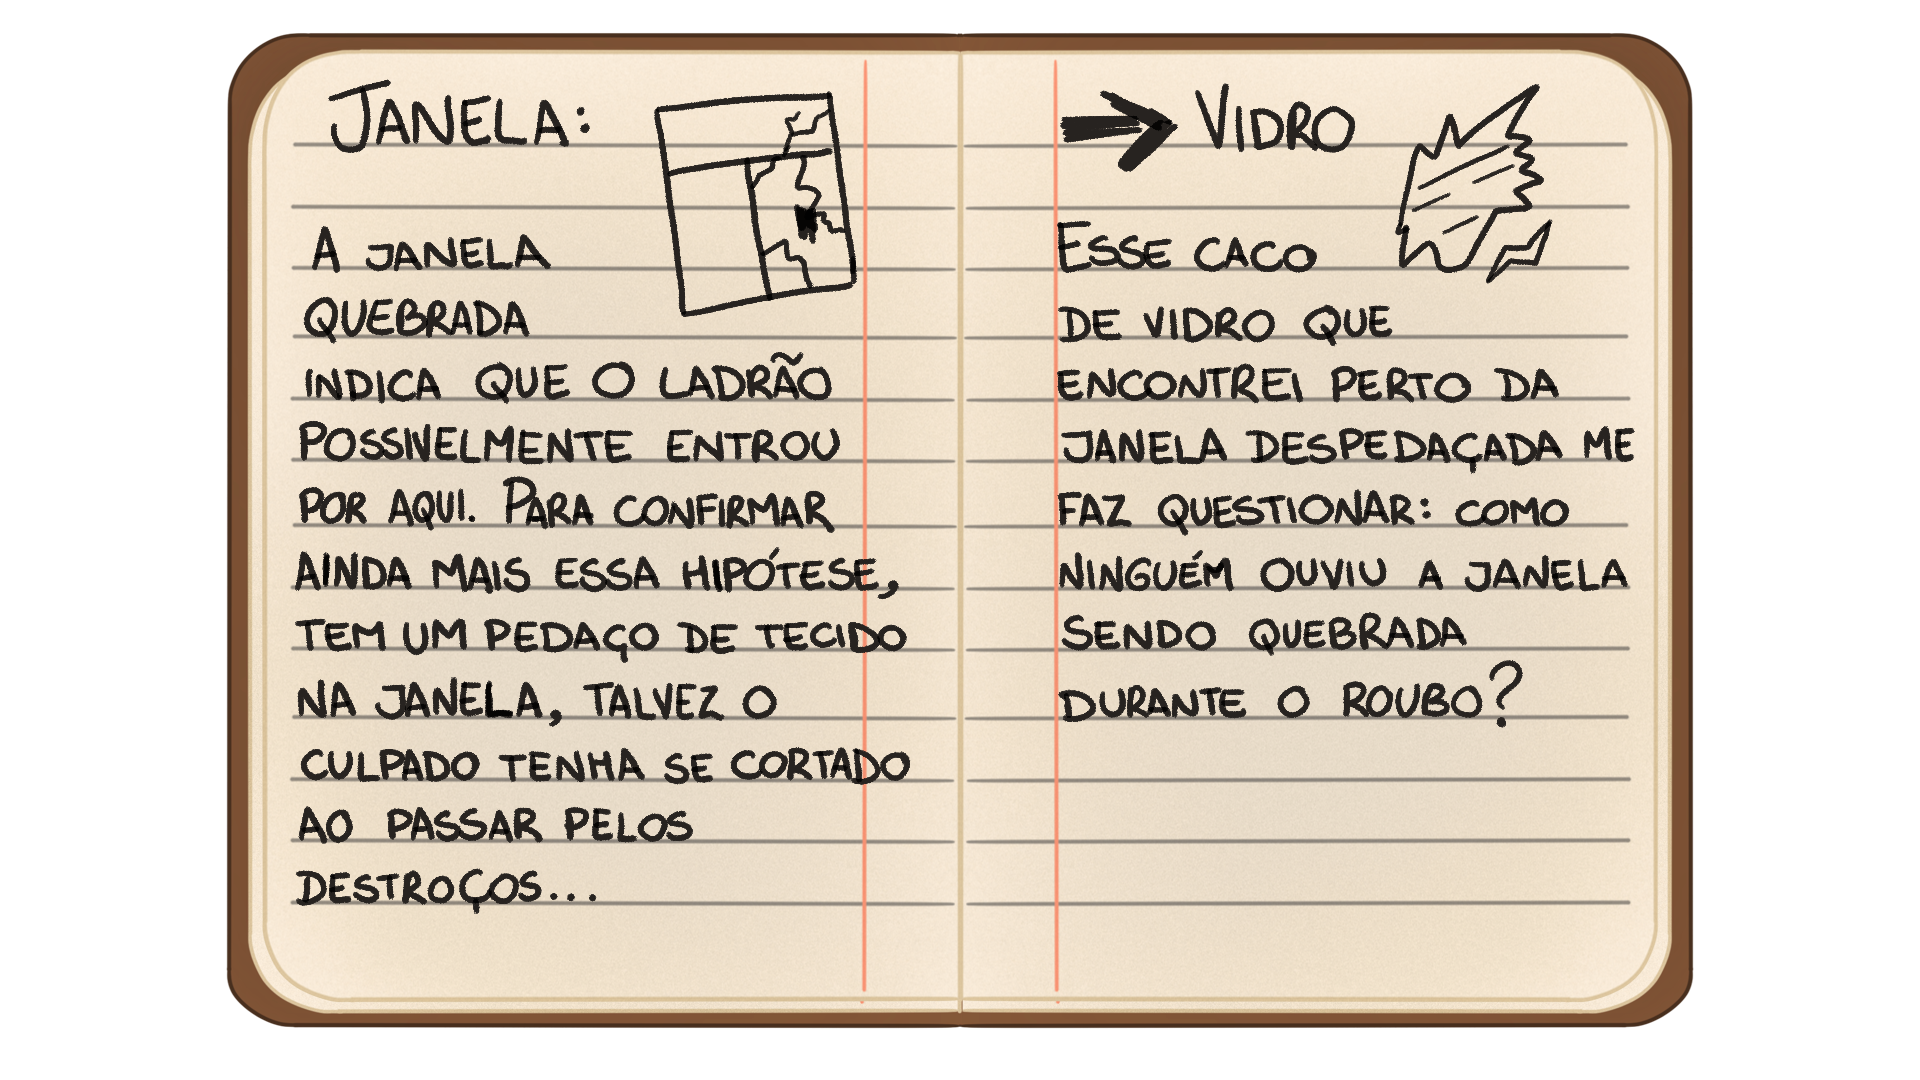 JANELA:
A JANELA
QUEBRADA
INDICA QUE O LADRÃO
POSSIVELMENTE ENTROU
POR AQUI. PARA CONFIRMAR
AINDA MAIS ESSA HIPÓTESE,
TEM UM PEDAÇO DE TECIDO
NA JANELA, TALVEZ O
CULPADO TENHA SE CORTADO
AO PASSAR PELOS
DESTROÇOS...
→ VIDRO
ESSE CACO
DE VIDRO QUE
ENCONTREI PERTO DA
JANELA DESPEDAÇADA ME
FAZ QUESTIONAR: COMO
NINGUÉM OUVIU A JANELA
SENDO QUEBRADA
DURANTE O ROUBO?